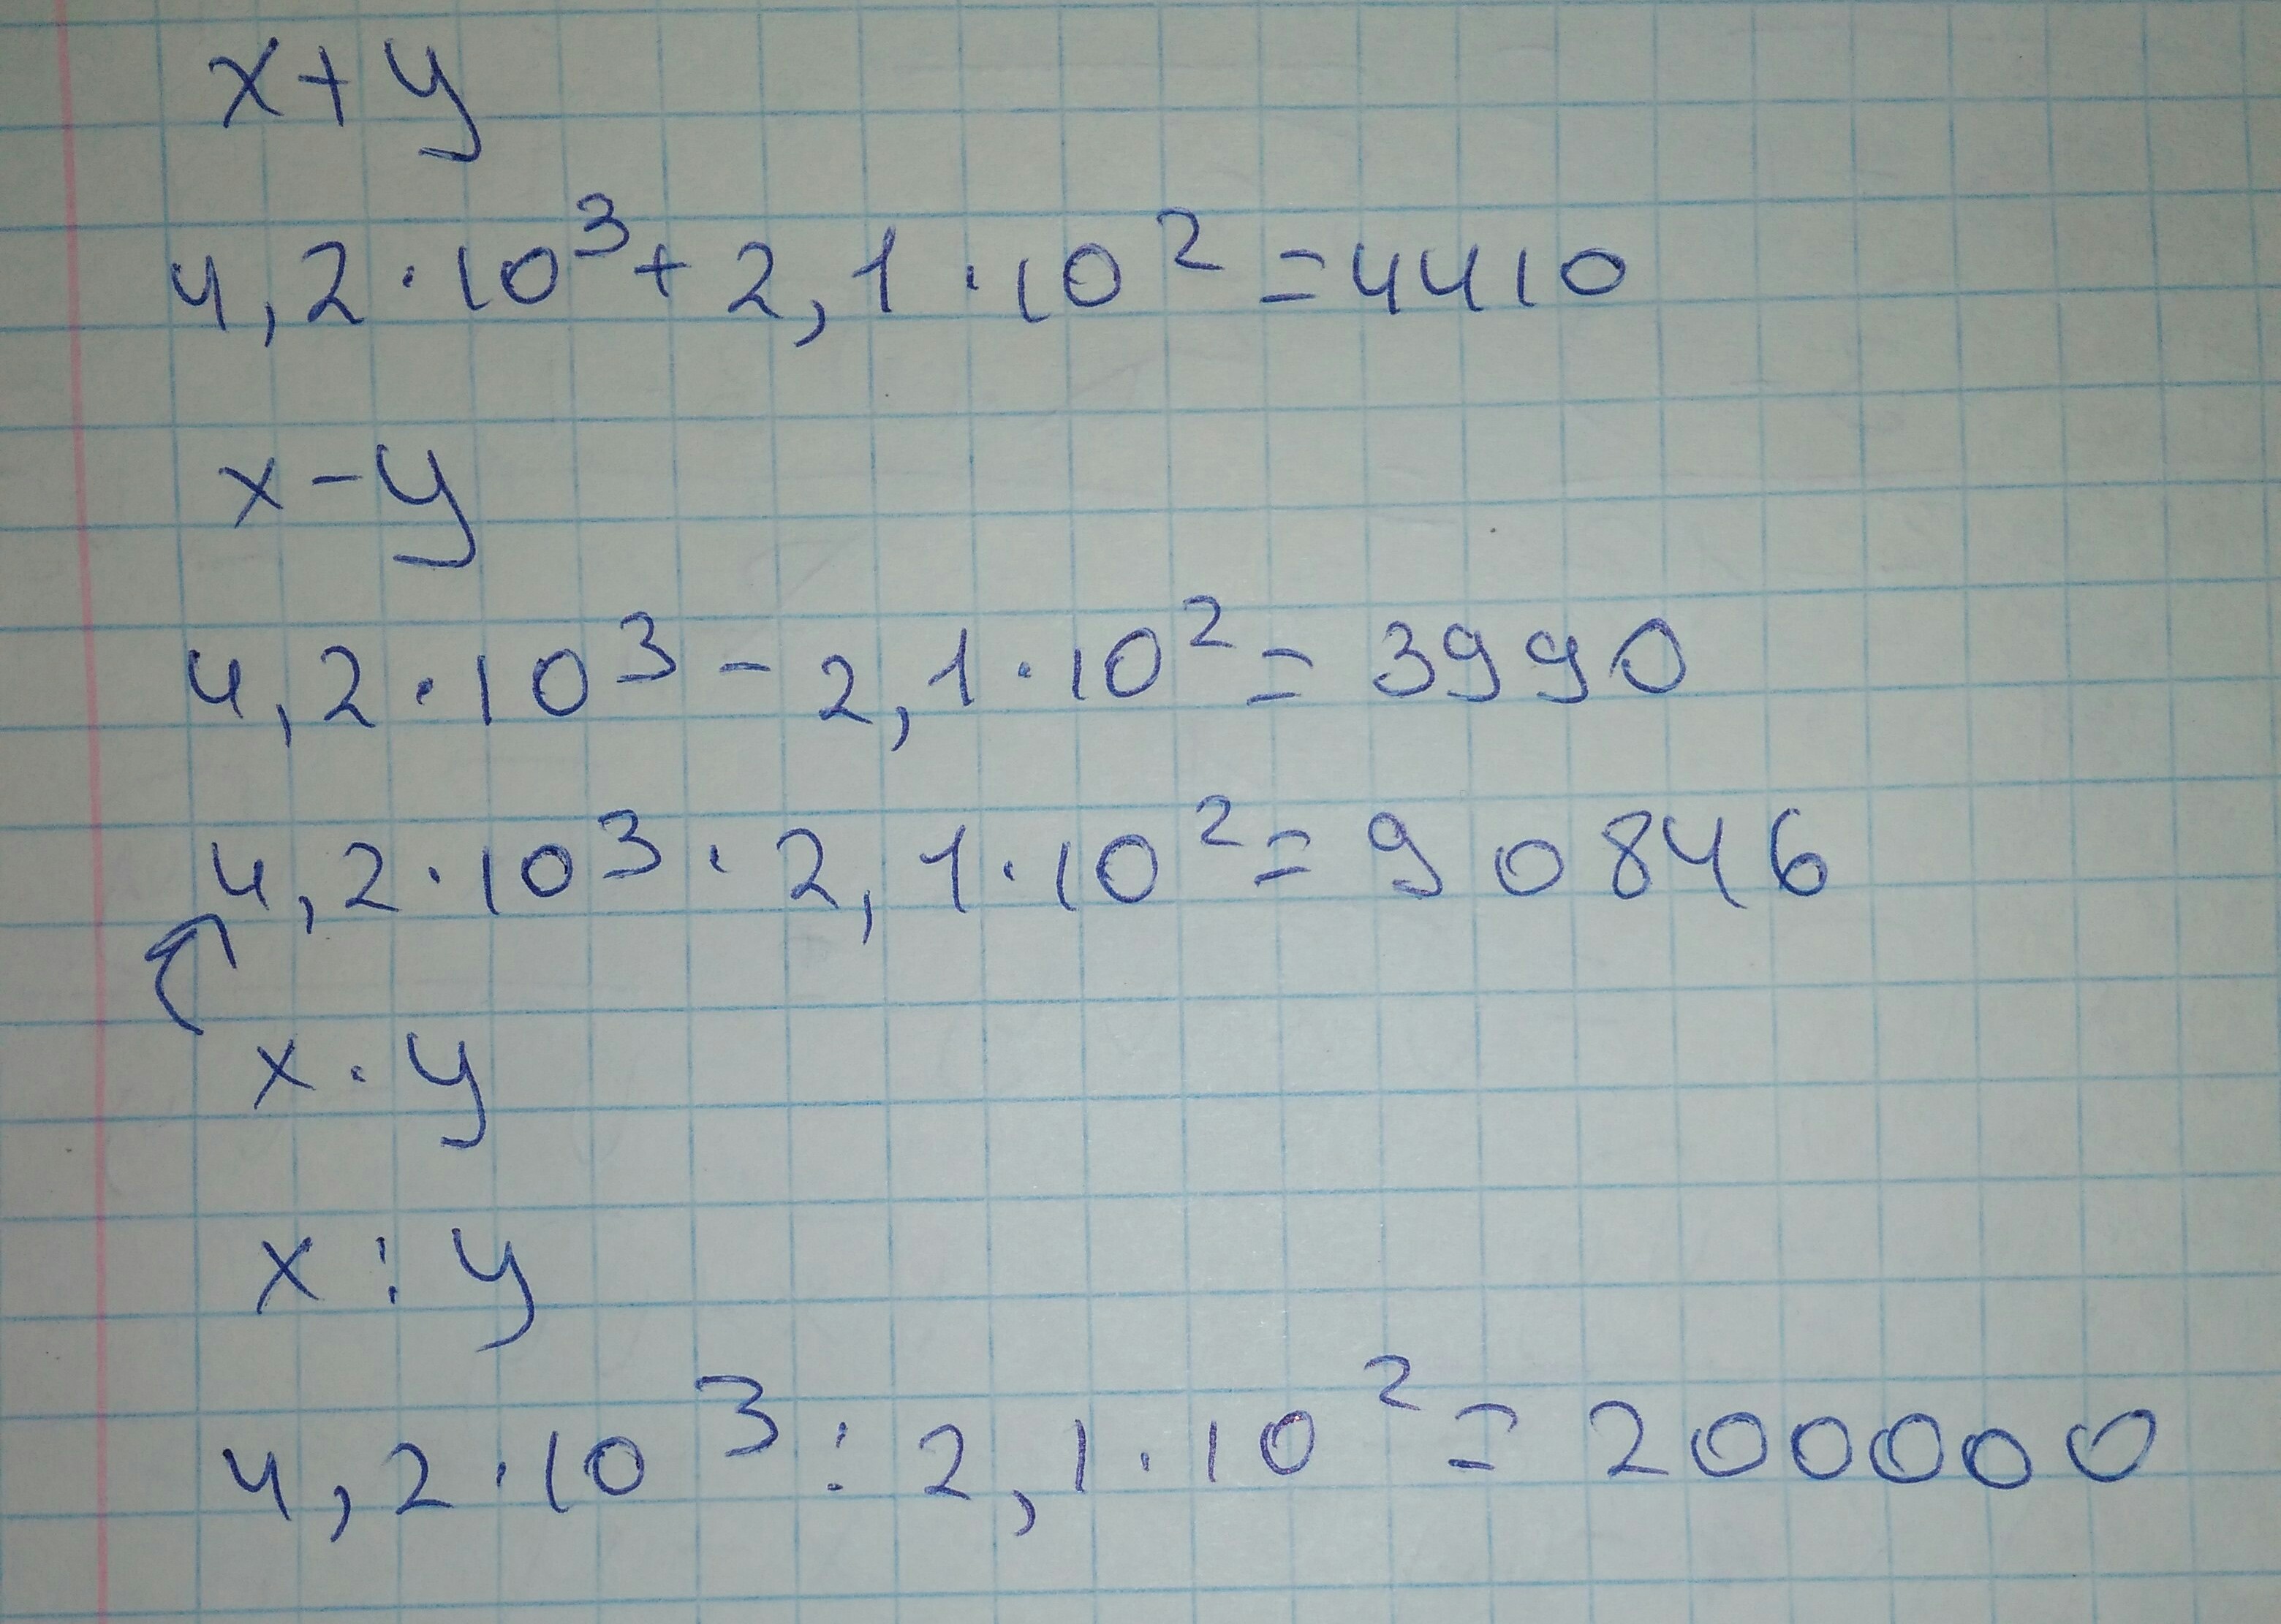 x+y
4,2·10³+2,1·10²=4410
x-y
4,2·10³-2,1·10²=3990
4,2·10³·2,1·10²=90846
x·y
x:y
4,2·10³:2,1·10²=200000